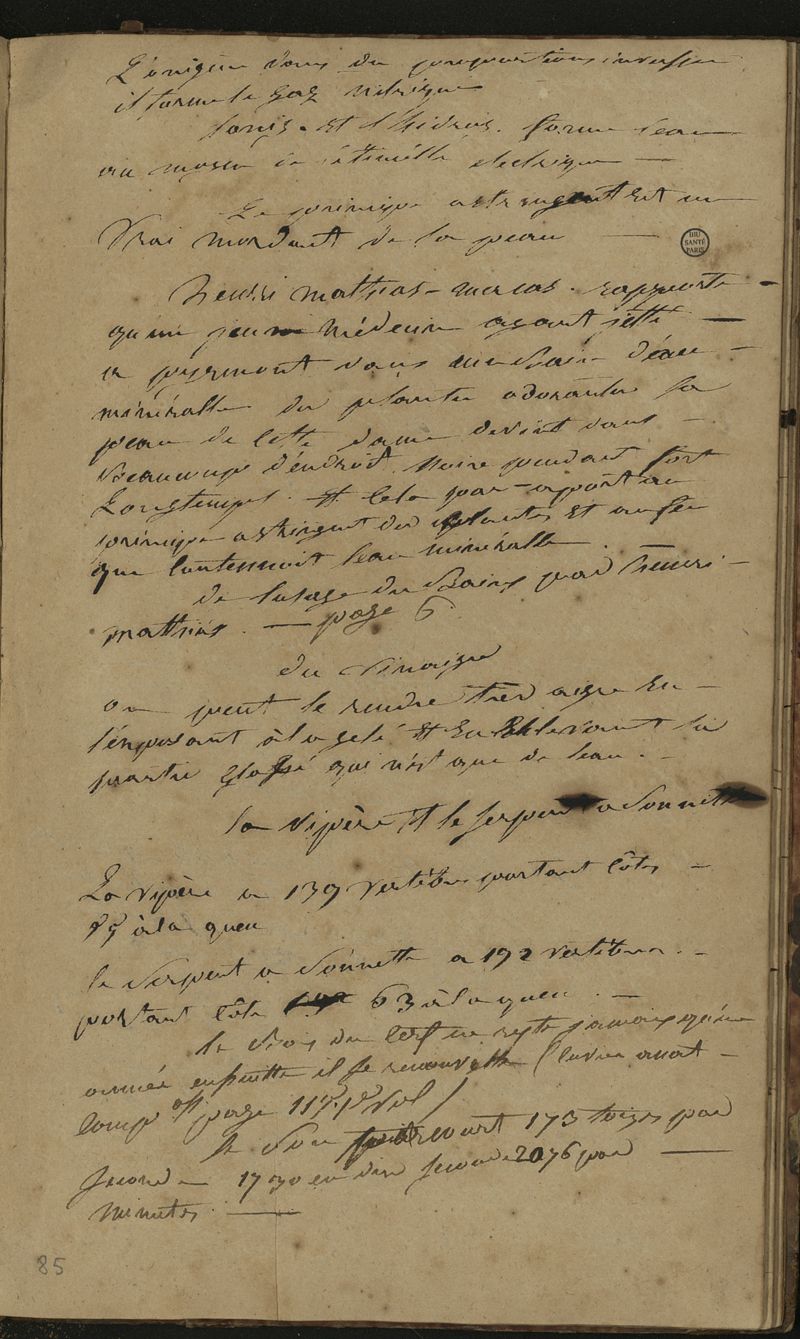 L'oxigene dans des proportions inverses
il forme le gaz nitrique
l'oxig. et l'hidrog. forme l'eau
au moyen de l'étincelle electrique —
Le principe astringent est un
vrai mordant de la peau —
BIU
SANTÉ
PARIS
henri mathias - marcas. rapporte —
qu'un jeune médecin ayant jetté —
a pyrmont dans un bain d'eau —
minéralle des plantes odorantes la
peau de cette dame devint dans —
beaucoup d'endroit noire pendant fort
Longtemps. et cela par raport au
principe astringent des plantes et au fer
que contennoit l'eau minéralle.
de l'usage des Bains par henri —
mathias. — page 6
du vinaigre
on peut le rendre tres aigre en —
l'exposant à la gelé et en enlevant la
partie glassé qui n'est que de l'eau. —
la vipère et le serpent a sonnette
La vipère a 139 vertèbres portant côtes —
55 à la queu
le serpent a sonnette a 192 vertebres. —
portant côte 63 à la queu. —
le bois du cerf ne reste jamais qu'une
année ensuitte il se renouvelle (cuvier anat —
comp. page 117. 1er vol)
le son parcourt 173 toises par
seconde 1730 en dix seconde 2076 par —
minutes. —
85